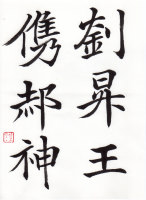 劉昇王
儁郝神